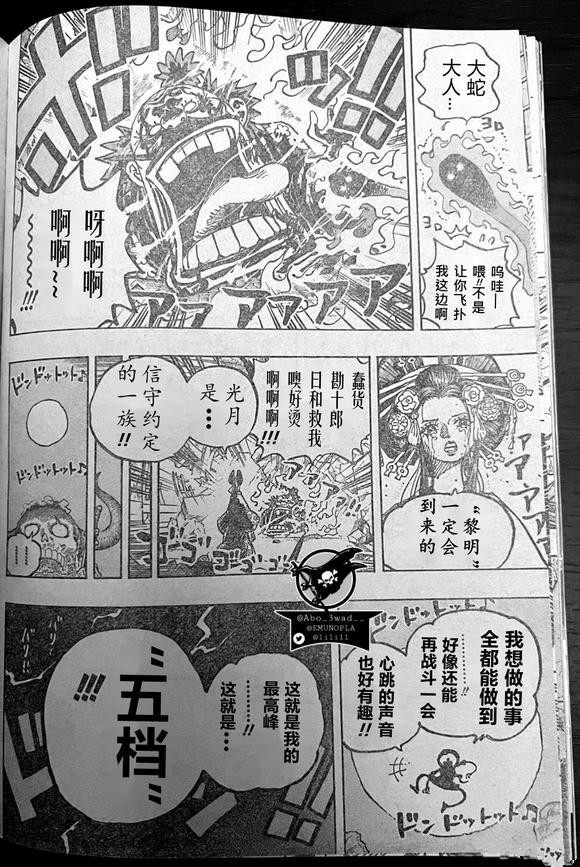 大蛇
大人…
ヨロ
呜哇—
喂!!不是
让你飞扑
我这边啊
ヨロ
呀啊啊
啊啊~
~~~~!!!
アァァアァァア
蠢货
勘十郎
日和救我
噢好烫
啊啊啊!!!
光月
是…
信守约定
的一族!!
“黎明”
一定会
到来的
アァアァ
ゴゴゴ
ドンドットット♫
ドンドットット♫
…………
我想做的事
全都能做到
…………!!
好像还能
再战斗一会
心跳的声音
也好有趣!!
ドンドットット♫
ドンドットット♫
这就是我的
最高峰
这就是…
“五档”
!!!
@Abo_3wad__
@EMUNOPLA
@lilill